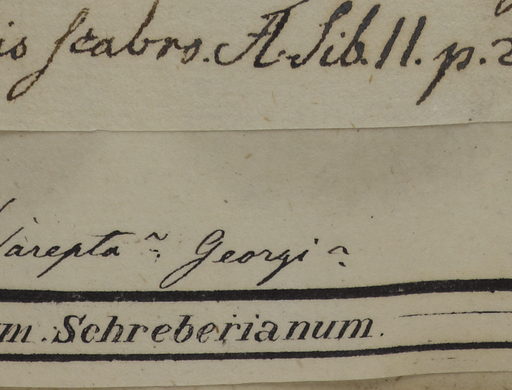 is scabro. Fl. Sib. II. p. 2
Sarepta ~. Georgi ~.
m. Schreberianum.